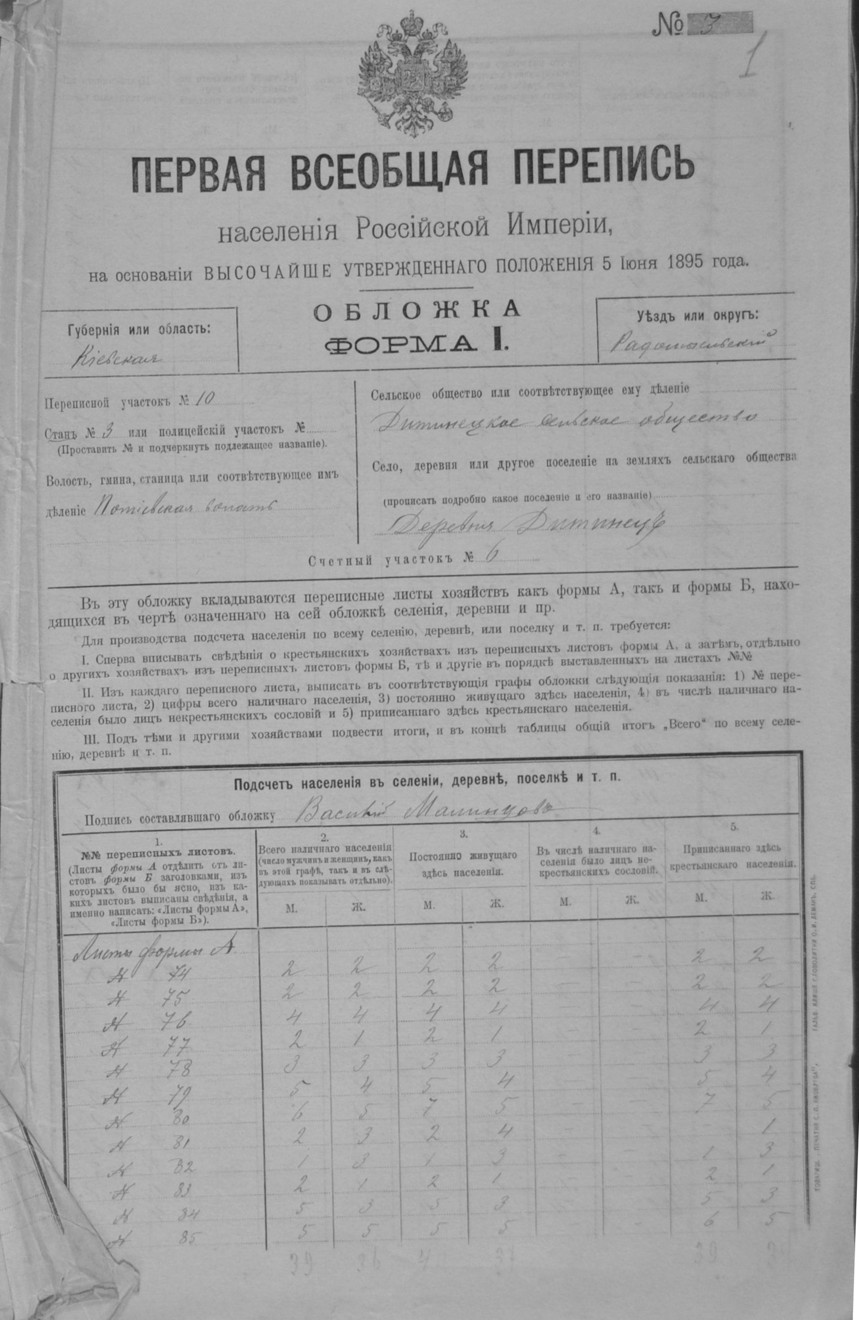 № 3
1
ПЕРВАЯ ВСЕОБЩАЯ ПЕРЕПИСЬ
населенія Россійской Имперіи,
на основаніи ВЫСОЧАЙШЕ УТВЕРЖДЕННАГО ПОЛОЖЕНІЯ 5 Іюня 1895 года.
ОБЛОЖКА
ФОРМА I.
Губернія или область:
Кіевская
Уѣздъ или округъ:
Радомысльскій
Переписной участокъ № 10
Станъ № 3 или полицейскій участокъ №
(Проставить № и подчеркнуть подлежащее названіе).
Волость, гмина, станица или соотвѣтствующее имъ
дѣленіе Потіевская волость
Сельское общество или соотвѣтствующее ему дѣленіе
Дитинецкое сельское общество
Село, деревня или другое поселеніе на земляхъ сельскаго общества
(прописать подробно какое поселеніе и его названіе)
Деревня Дитинецъ
Счетный участокъ № 6
Въ эту обложку вкладываются переписные листы хозяйствъ какъ формы А, такъ и формы Б, нахо-
дящихся въ чертѣ означеннаго на сей обложкѣ селенія, деревни и пр.
Для производства подсчета населенія по всему селенію, деревнѣ, или поселку и т. п. требуется:
I. Сперва вписывать свѣдѣнія о крестьянскихъ хозяйствахъ изъ переписныхъ листовъ формы А, а затѣмъ, отдѣльно
о другихъ хозяйствахъ изъ переписныхъ листовъ формы Б, тѣ и другіе въ порядкѣ выставленныхъ на листахъ №№
II. Изъ каждаго переписного листа, выписать въ соотвѣтствующія графы обложки слѣдующія показанія: 1) № пере-
писного листа, 2) цифры всего наличнаго населенія, 3) постоянно живущаго здѣсь населенія, 4) въ числѣ наличнаго на-
селенія было лицъ некрестьянскихъ сословій и 5) приписаннаго здѣсь крестьянскаго населенія.
III. Подъ тѣми и другими хозяйствами подвести итоги, и въ концѣ таблицы общій итогъ „Всего“ по всему селе-
нію, деревнѣ и т. п.
Подсчетъ населенія въ селеніи, деревнѣ, поселкѣ и т. п.
Подпись составлявшаго обложку Василій Малинцовъ
1.
№№ переписныхъ листовъ.
(Листы формы А отдѣлить отъ ли-
стовъ формы Б заголовками, изъ
которыхъ было бы ясно, изъ ка-
кихъ листовъ выписаны свѣдѣнія, а
именно написать: «Листы формы А»,
«Листы формы Б»).
2.
Всего наличнаго населенія
(число мужчинъ и женщинъ, какъ
въ этой графѣ, такъ и въ слѣ-
дующихъ показывать отдѣльно).
3.
Постоянно живущаго
здѣсь населенія.
4.
Въ числѣ наличнаго на-
селенія было лицъ не-
крестьянскихъ сословій.
5.
Приписаннаго здѣсь
крестьянскаго населенія.
М. Ж. М. Ж. М. Ж. М. Ж.
Листы формы А
№ 74 2 2 2 2 - - 2 2
№ 75 2 2 2 2 - - 2 2
№ 76 4 4 4 4 - - 4 4
№ 77 2 1 2 1 - - 2 1
№ 78 3 3 3 3 - - 3 3
№ 79 5 4 5 4 - - 5 4
№ 80 6 5 7 5 - - 7 5
№ 81 2 3 2 4 - - - 1
№ 82 1 3 1 3 - - 1 3
№ 83 2 1 2 1 - - 2 1
№ 84 5 3 5 3 - - 5 3
№ 85 5 5 5 5 - - 6 5
39 36 39